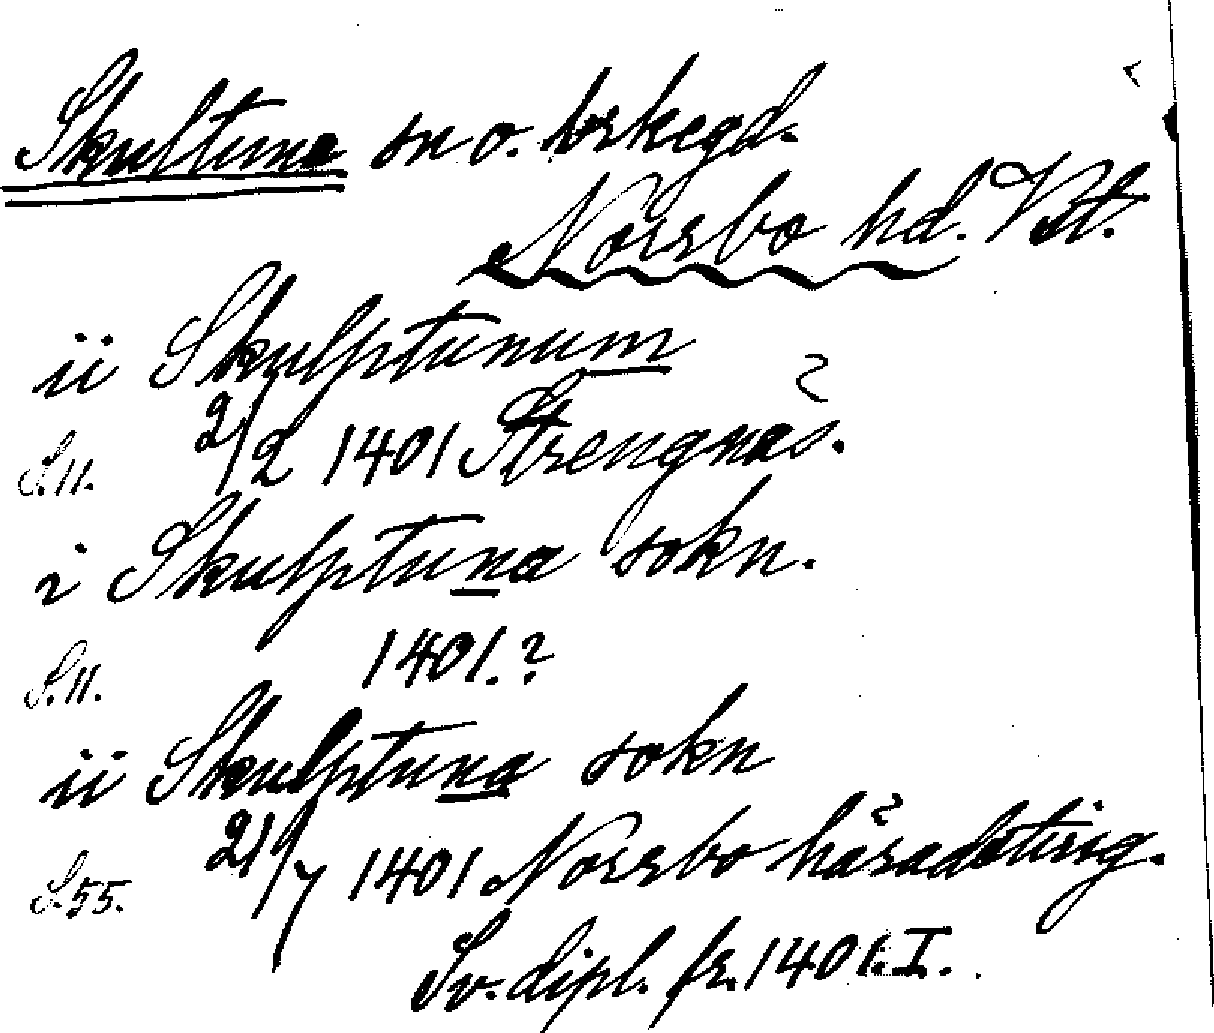 Skultuna sn o. brkegd.
Norrbo hd. Vst.
ii Skulptunum
S.11. 2/2 1401 Strengnäs.
i Skulptuna sokn.
S.11. 1401.?
ii Skulptuna sokn
S.55. 21/7 1401 Norrbo häradsting.
Sv. dipl. fr. 1401. I.